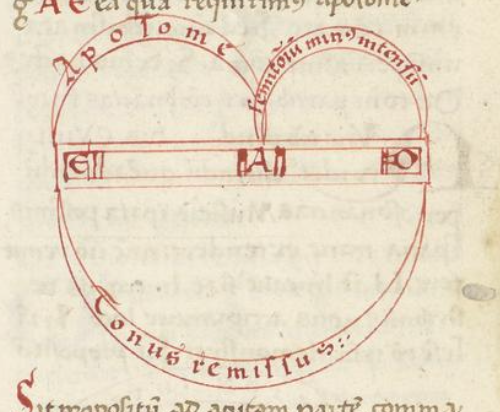 A E ea qua requirimus apotome
Apotome
semitoiū minus intensū
E A D
Tonus remissus:
Sit propositū ad acutam partē comma